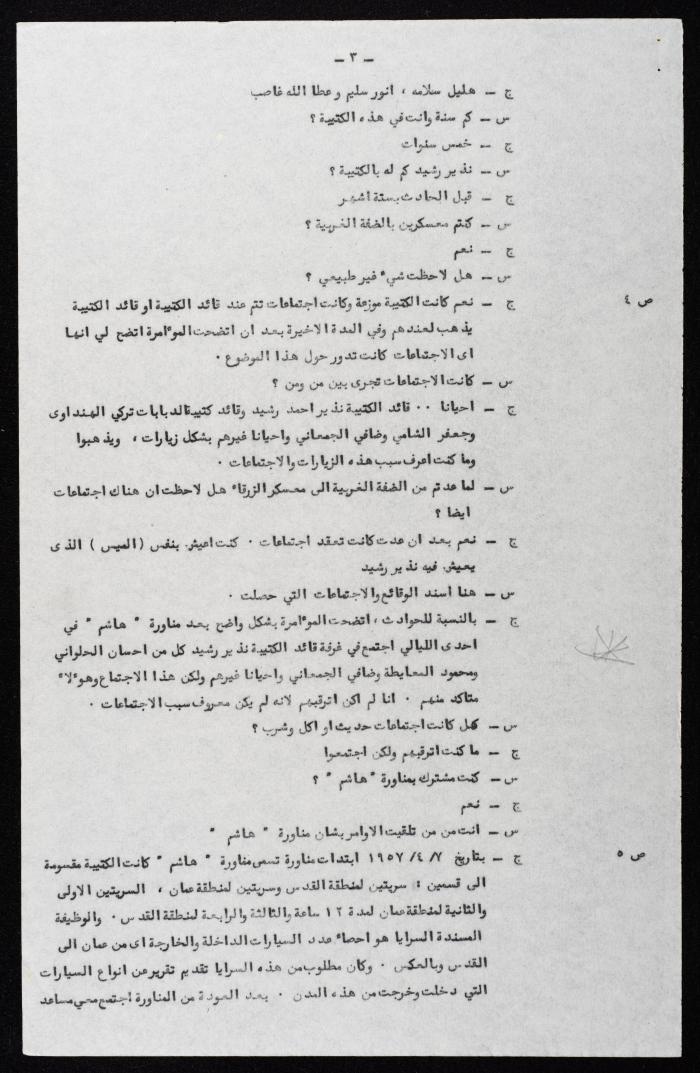 – ٣ –
ج – هليل سلامه ، انور سليم وعطا الله غاصب
س – كم سنة وانت في هذه الكتيبة ؟
ج – خمس سنوات
س – نذير رشيد كم له بالكتيبة ؟
ج – قبل الحادث بستة اشهر
س – كنتم معسكرين بالضفة الغربية ؟
ج – نعم
س – هل لاحظت شيء غير طبيعي ؟
ص ٤
ج – نعم كانت الكتيبة موزعة وكانت اجتماعات تتم عند قائد الكتيبة او قائد الكتيبة
يذهب لعندهم وفي المدة الاخيرة بعد ان اتضحت الموءامرة اتضح لي انها
اى الاجتماعات كانت تدور حول هذا الموضوع ٠
س – كانت الاجتماعات تجرى بين من ومن ؟
ج – احيانا ٠٠ قائد الكتيبة نذير احمد رشيد وقائد كتيبة الدبابات تركي الهنداوى
وجعفر الشامي وضافي الجمعاني واحيانا غيرهم بشكل زيارات ، ويذهبوا
وما كنت اعرف سبب هذه الزيارات والاجتماعات ٠
س – لما عدتم من الضفة الغربية الى معسكر الزرقاء هل لاحظت ان هناك اجتماعات
ايضا ؟
ج – نعم بعد ان عدت كانت تعقد اجتماعات ٠ كنت اعيش بنفس ( الميس ) الذى
يعيش فيه نذير رشيد
س – هنا أسند الوقائع والاجتماعات التي حصلت ٠
ج – بالنسبة للحوادث ، اتضحت الموءامرة بشكل واضح بعد مناورة " هاشم " في
احدى الليالي اجتمع في غرفة قائد الكتيبة نذير رشيد كل من احسان الحلواني
ومحمود المعايطة وضافي الجمعاني واحيانا غيرهم ولكن هذا الاجتماع وهوءلاء
متاكد منهم ٠ انا لم اكن اترقبهم لانه لم يكن معروف سبب الاجتماعات ٠
س – كهل كانت اجتماعات حديث او اكل وشرب ؟
ج – ما كنت اترقبهم ولكن اجتمعوا
س – كنت مشترك بمناورة " هاشم " ؟
ج – نعم
س – انت من من تلقيت الاوامر بشان مناورة " هاشم "
ص ٥
ج – بتاريخ ٧ /٤/ ١٩٥٧ ابتدات مناورة تسمى مناورة " هاشم " كانت الكتيبة مقسومة
الى قسمين : سريتين لمنطقة القدس وسريتين لمنطقة عمان ، السريتين الاولى
والثانية لمنطقة عمان لمدة ١٢ ساعة والثالثة والرابعة لمنطقة القدس ٠ والوظيفة
المسندة السرايا هو احصاء عدد السيارات الداخلة والخارجة اى من عمان الى
القدس وبالعكس ٠ وكان مطلوب من هذه السرايا تقديم تقرير عن انواع السيارات
التي دخلت وخرجت من هذه المدن ٠ بعد العودة من المناورة اجتمع معي مساعد